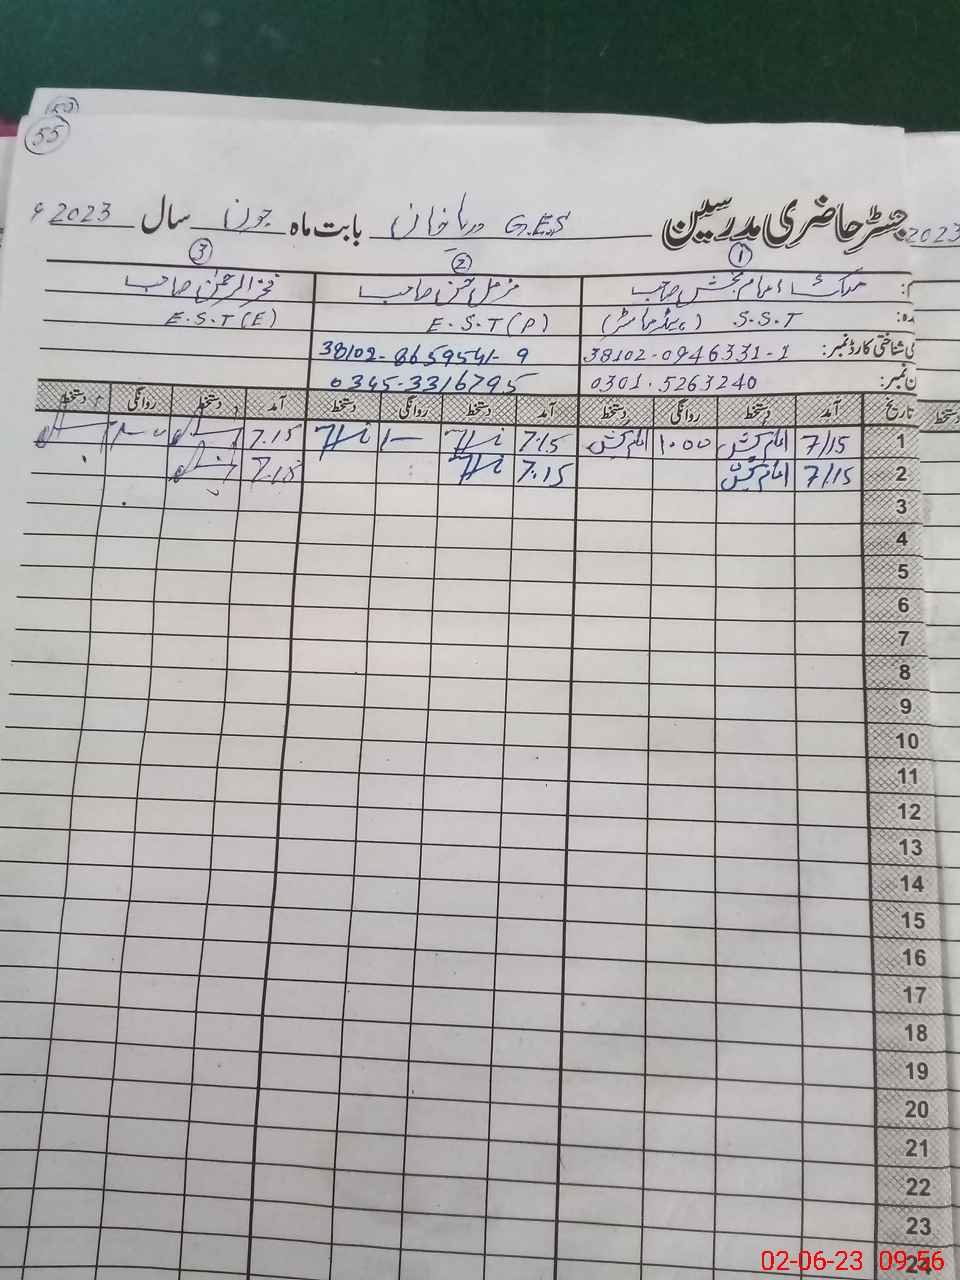 50
55
رجسٹر حاضری مدرسین G.E.S دریا خان بابت ماہ جون سال 2023ء
2023
① ② ③
ملک امام بخش صاحب مزمل حسن صاحب فخرالرحمٰن صاحب
S.S.T (ہیڈماسٹر) E.S.T (P) E.S.T (E)
شناختی کارڈ نمبر: 38102-0946331-1 38102-8659541-9
نمبر: 0301.5263240 0345-3316795
تاریخ آمد دستخط روانگی دستخط آمد دستخط روانگی دستخط آمد دستخط روانگی دستخط
دستخط
1 7/15 امام بخش 1:00 امام بخش 7:15 7:15
2 7/15 امام بخش 7:15 7:15
3
4
5
6
7
8
9
10
11
12
13
14
15
16
17
18
19
20
21
22
23
24
02-06-23 09:56